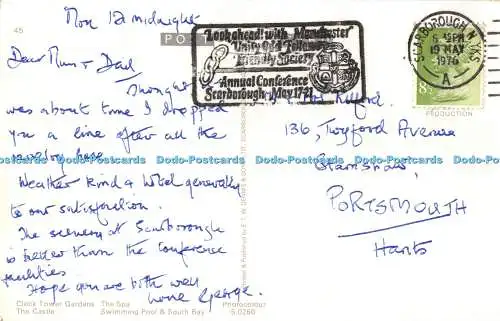 45
Mon 12 midnight
POST
Dear Mum & Dad
Thought
was about time I dropped
you a line after all the
here
Weather kind & hotel generally
to our satisfaction.
The scenery at Scarborough
is better than the conference
facilities
Hope you are both well
love George.
Clock Tower Gardens The Spa
The Castle Swimming Pool & South Bay
Photocolour
5.0260
"Look ahead! with Manchester
Unity Odd Fellows
Friendly Society"
Annual Conference
Scarborough - May 17-21
SCARBOROUGH N. YKS
5 15PM
19 MAY
1976
A
8½
136, Twyford Avenue
Stamshaw,
PORTSMOUTH
Hants
Dodo-Postcards Dodo-Postcards Dodo-Postcards Dodo-Postcards